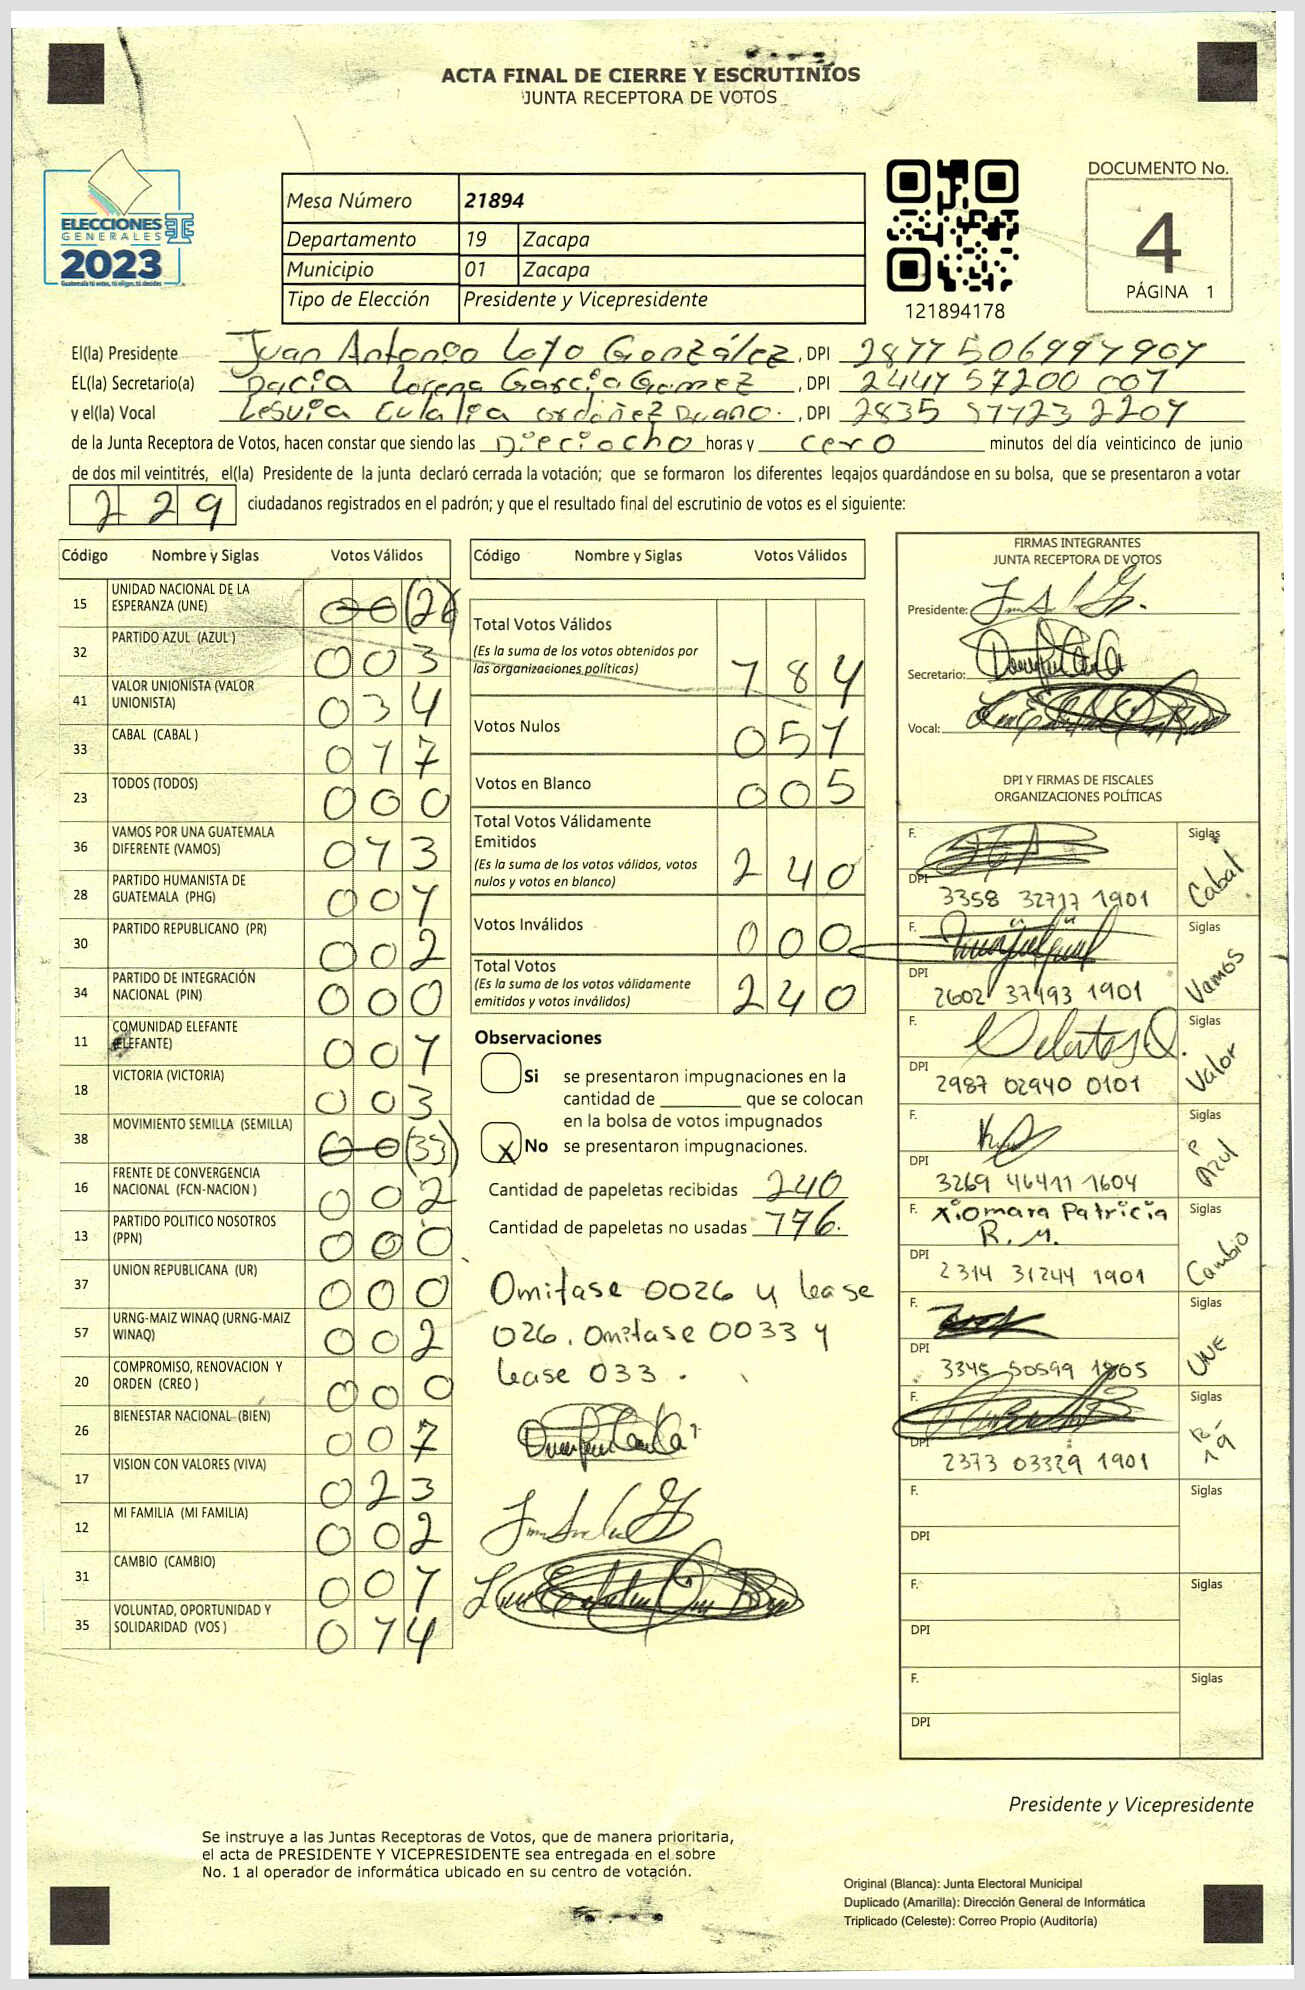 ACTA FINAL DE CIERRE Y ESCRUTINIOS
JUNTA RECEPTORA DE VOTOS
ELECCIONES
GENERALES
2023
Guatemala tú votas, tú eliges, tú decides
Mesa Número 21894
Departamento 19 Zacapa
Municipio 01 Zacapa
Tipo de Elección Presidente y Vicepresidente
121894178
DOCUMENTO No.
4
PÁGINA 1
El(la) Presidente Juan Antonio Loyo González, DPI
EL(la) Secretario(a) Dacia Lorena García Gomez, DPI
y el(la) Vocal Lesvia Eulalia Ordoñez Duano., DPI
de la Junta Receptora de Votos, hacen constar que siendo las Dieciocho horas y cero minutos del día veinticinco de junio
de dos mil veintitrés, el(la) Presidente de la junta declaró cerrada la votación; que se formaron los diferentes legajos guardándose en su bolsa, que se presentaron a votar
229 ciudadanos registrados en el padrón; y que el resultado final del escrutinio de votos es el siguiente:
Código Nombre y Siglas Votos Válidos
15 UNIDAD NACIONAL DE LA ESPERANZA (UNE) 00(26)
32 PARTIDO AZUL (AZUL ) 003
41 VALOR UNIONISTA (VALOR UNIONISTA) 034
33 CABAL (CABAL ) 017
23 TODOS (TODOS) 000
36 VAMOS POR UNA GUATEMALA DIFERENTE (VAMOS) 013
28 PARTIDO HUMANISTA DE GUATEMALA (PHG) 001
30 PARTIDO REPUBLICANO (PR) 002
34 PARTIDO DE INTEGRACIÓN NACIONAL (PIN) 000
11 COMUNIDAD ELEFANTE (ELEFANTE) 001
18 VICTORIA (VICTORIA) 003
38 MOVIMIENTO SEMILLA (SEMILLA) 00(33)
16 FRENTE DE CONVERGENCIA NACIONAL (FCN-NACION ) 002
13 PARTIDO POLITICO NOSOTROS (PPN) 000
37 UNION REPUBLICANA (UR) 000
57 URNG-MAIZ WINAQ (URNG-MAIZ WINAQ) 002
20 COMPROMISO, RENOVACION Y ORDEN (CREO ) 000
26 BIENESTAR NACIONAL (BIEN) 007
17 VISION CON VALORES (VIVA) 023
12 MI FAMILIA (MI FAMILIA) 002
31 CAMBIO (CAMBIO) 001
35 VOLUNTAD, OPORTUNIDAD Y SOLIDARIDAD (VOS ) 014
Código Nombre y Siglas Votos Válidos
Total Votos Válidos 184
(Es la suma de los votos obtenidos por
las organizaciones políticas)
Votos Nulos 051
Votos en Blanco 005
Total Votos Válidamente
Emitidos 240
(Es la suma de los votos válidos, votos
nulos y votos en blanco)
Votos Inválidos 000
Total Votos 240
(Es la suma de los votos válidamente
emitidos y votos inválidos)
Observaciones
Si se presentaron impugnaciones en la
cantidad de ________ que se colocan
en la bolsa de votos impugnados
X No se presentaron impugnaciones.
Cantidad de papeletas recibidas 240
Cantidad de papeletas no usadas 176.
Omitase 0026 y lease
026. Omitase 0033 y
lease 033.
FIRMAS INTEGRANTES
JUNTA RECEPTORA DE VOTOS
Presidente:
Secretario:
Vocal:
DPI Y FIRMAS DE FISCALES
ORGANIZACIONES POLÍTICAS
F. Siglas Cabal
DPI 3358 32717 1901
F. Siglas Vamos
DPI 2602 37493 1901
F. Siglas Valor
DPI 2987 02940 0101
F. Siglas P Azul
DPI 3269 46411 1604
F. Xiomara Patricia R. M. Siglas Cambio
DPI 2314 31244 1901
F. Siglas UNE
DPI 3345 50599 1805
F. Siglas
DPI 2373 03329 1901
F. Siglas
DPI
F. Siglas
DPI
F. Siglas
DPI
Presidente y Vicepresidente
Se instruye a las Juntas Receptoras de Votos, que de manera prioritaria,
el acta de PRESIDENTE Y VICEPRESIDENTE sea entregada en el sobre
No. 1 al operador de informática ubicado en su centro de votación.
Original (Blanca): Junta Electoral Municipal
Duplicado (Amarilla): Dirección General de Informática
Triplicado (Celeste): Correo Propio (Auditoría)